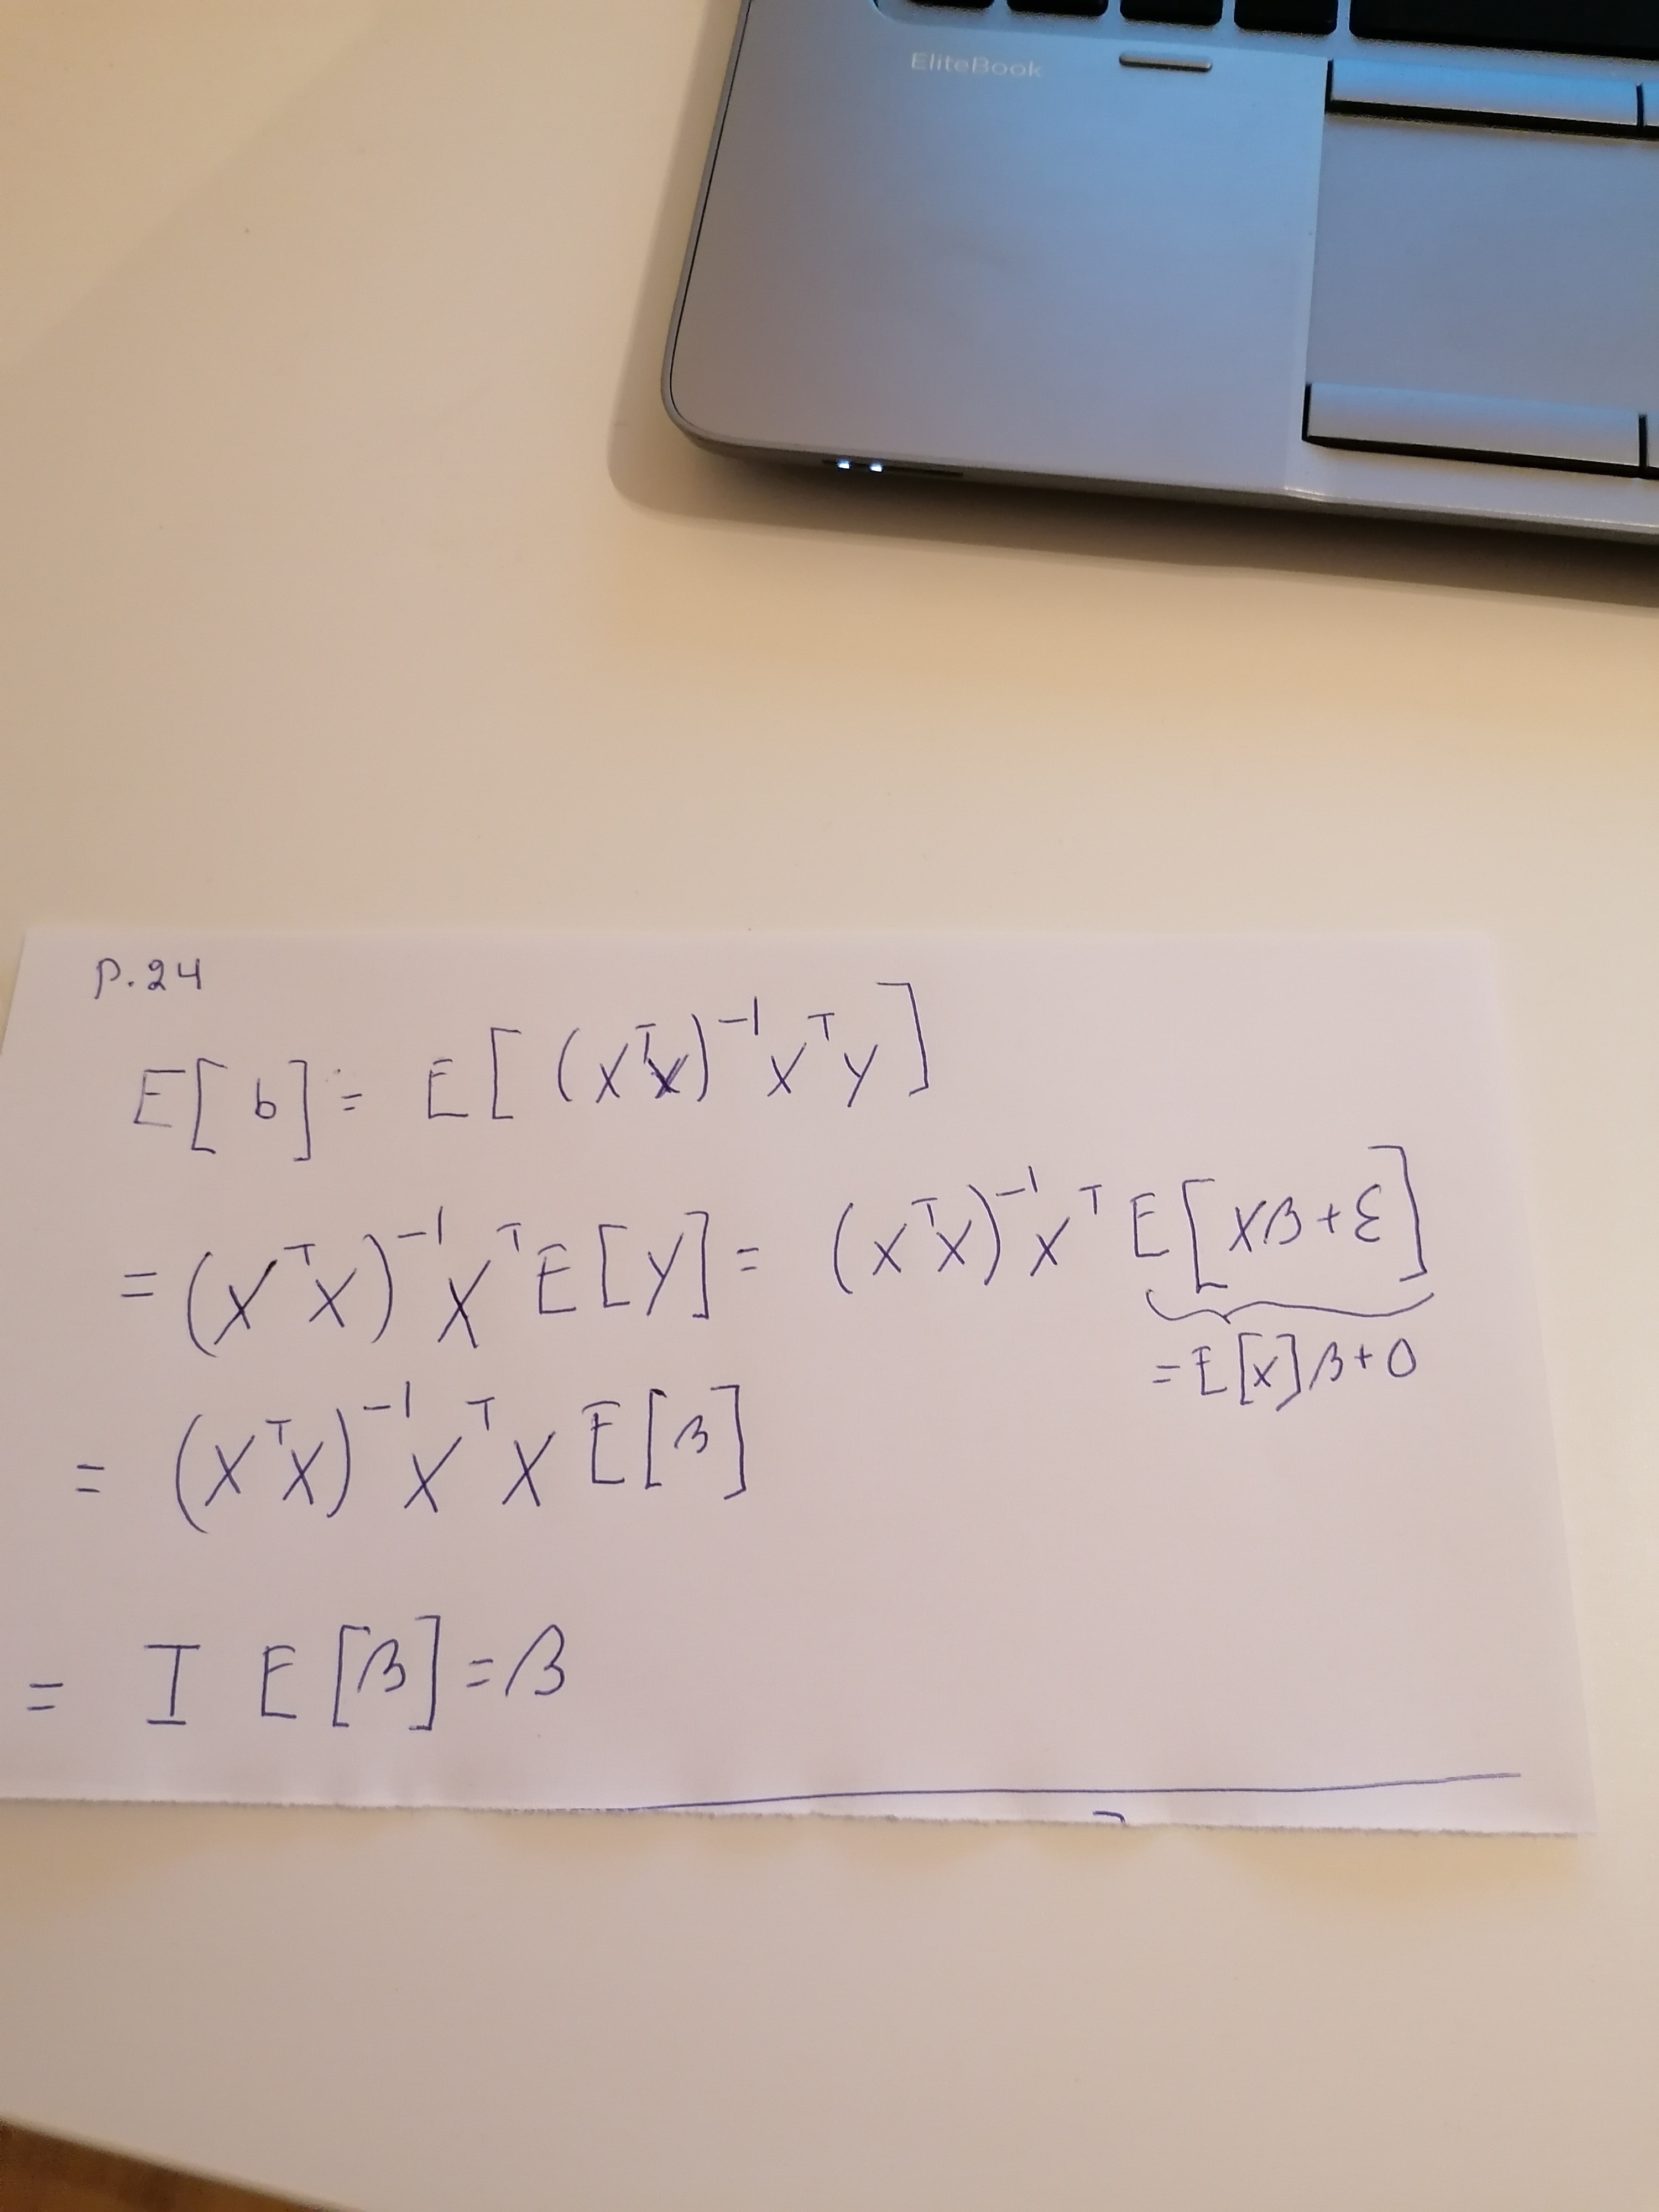 EliteBook
P.24
E[b] = E[(XᵀX)⁻¹XᵀY]
= (XᵀX)⁻¹XᵀE[Y] = (XᵀX)⁻¹XᵀE[Xβ+ε]
= E[X]β+0
= (XᵀX)⁻¹XᵀX E[β]
= I E[β] = β